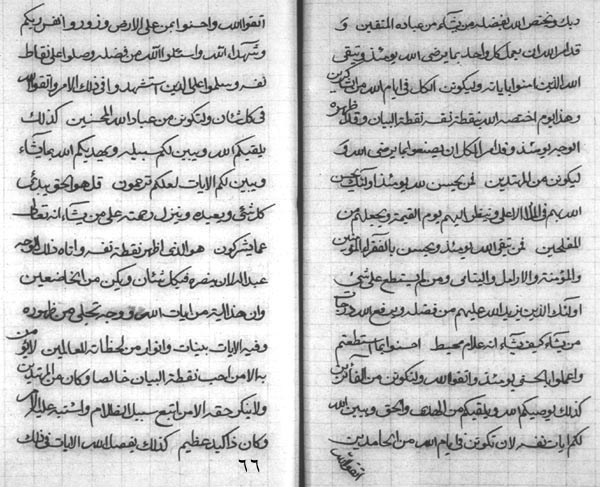 ربك ويختص الله بفضله من يشاء من عباده المتقين و
قد امر الله ان يعمل كل واحد بما يرضى الله يومئذ ويتقى
الله الذين امنوا باياته وليكونن الكل في ايام الله من الشاكرين
وهذا يوم اختصه الله بنقطة نفسه نقطة البيان وقد ظهره
الوجه يومئذ وقد امر الكل ان يصنعوا بما يرضى الله و
ليكونن من المهتدين لمن يحسن لله يومئذ اولئك يحسن
الله بهم في الملأ الاعلى وينظر اليهم يوم القيمة ويجعلهم من
المفلحين فمن يتقى الله يومئذ ويحسن بالفقراء المؤمنين
والمؤمنة والارامل واليتامى ومن لم يستطع على شيء
اولئك الذين يزيد الله عليهم من فضله ويرفع الله درجات
من يشاء كيف يشاء انه علام محيط احسنوا بما استطعتم
واعملوا بالحق يومئذ واتقوا الله ولتكونن من الفائزين
كذلك يوصيكم الله ويلقيكم من الهدى والحق ويبين الله
لكم ايات نفسه لان تكونن في ايام الله من الحامدين
اتقوا الله
اتقوا الله واحسنوا بمن على الارض وزوروا انفس ربكم
وشهداء الله واسئلوا الله من فضله وصلوا على نقطة
نفسه وسلموا على الذين استشهدوا في ذلك الامر واتقوا الله
في كل شان ولتكونن من عباد الله المحسنين كذلك
يلقيكم الله ويبين لكم سبيله ويهديكم الله بما يشاء
ويبين لكم الايات لعلكم ترحمون قل هو الحق يبدئ
كل شيء ويعيده وينزل رحمته على من يشاء انه تعالى
عما يشركون هو الذى اظهر نقطة نفسه واتاه ذلك الوجه
عبد الله ان ينصره في كل شان ويكن من الخاضعين
وان هذا لاية من ايات الله ووجه تجلى من ظهوره
وفيه الايات بينات وانوار من لحظاته للعالمين لا يؤمن
به الا من احب نقطة البيان خالصا وكان من المهتدين
ولا ينكر حقه الا من اتبع سبيل الظلام واشتبه عليه الامر
وكان ذا كيد عظيم كذلك يفصل الله الايات في ذلك
٦٦